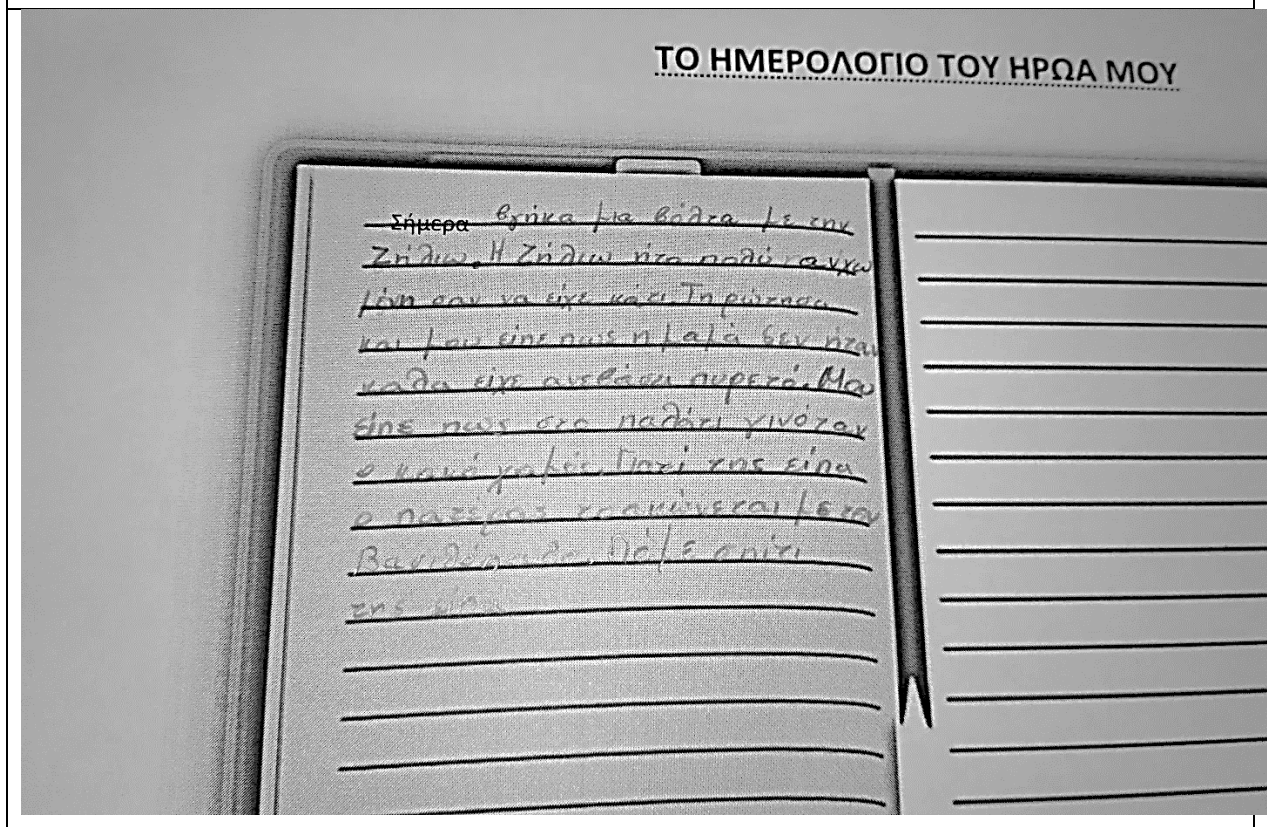 ΤΟ ΗΜΕΡΟΛΟΓΙΟ ΤΟΥ ΗΡΩΑ ΜΟΥ
Σήμερα βγήκα μια βόλτα με την
Ζήλιω. Η Ζήλιω ήτα πολύ αγχω
μένη σαν να είχε κάτι Τη ρώτησα
και μου είπε πως η μαμά δεν ήταν
καλα είχε ανεβάσει πυρετό. Μου
είπε πως στο παλάτι γινόταν
ο κακό χαμός. Γιατί της είπα
ο πατέρας τσακώνεται με τον
Πάμε σπίτι
της είπα